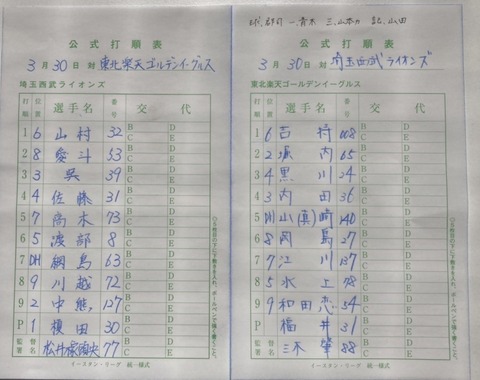 公式打順表
3月30日 対 東北楽天ゴールデンイーグルス
埼玉西武ライオンズ
打順 位置 選手名 番号 交代
1 6 山村 32 B D C E
2 8 愛斗 53 B D C E
3 3 呉 39 B D C E
4 4 佐藤 31 B D C E
5 7 高木 73 B D C E
6 5 渡部 8 B D C E
7 DH 綱島 63 B D C E
8 9 川越 72 B D C E
9 2 中熊 127 B D C E
P 1 榎田 30 B D C E
監督名 松井稼頭央 77
イースタン・リーグ 統一様式
一、青木 三、山本力 記、山田
公式打順表
3月30日 対 埼玉西武ライオンズ
東北楽天ゴールデンイーグルス
打順 位置 選手名 番号 交代
1 6 吉持 008 B D C E
2 2 堀内 65 B D C E
3 4 黒川 24 B D C E
4 3 内田 36 B D C E
5 DH 山(真)崎 140 B D C E
6 8 岡島 27 B D C E
7 7 江川 137 B D C E
8 5 水上 B D C E
9 9 和田恋 54 B D C E
P 福井 31 B D C E
監督名 三木肇 88
イースタン・リーグ 統一様式